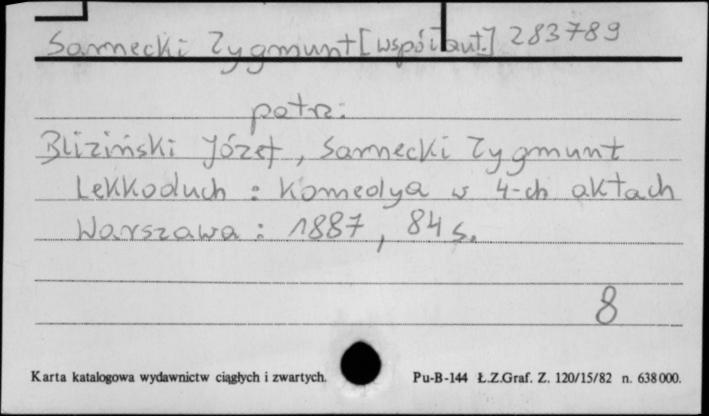 Sarnecki Zygmunt [współaut.] 283789
patrz:
Bliziński Józef, Sarnecki Zygmunt
Lekkoduch : Komedya w 4-ch aktach
Warszawa : 1887, 84 s.
8
Karta katalogowa wydawnictw ciągłych i zwartych. Pu-B-144 Ł.Z.Graf. Z. 120/15/82 n. 638000.